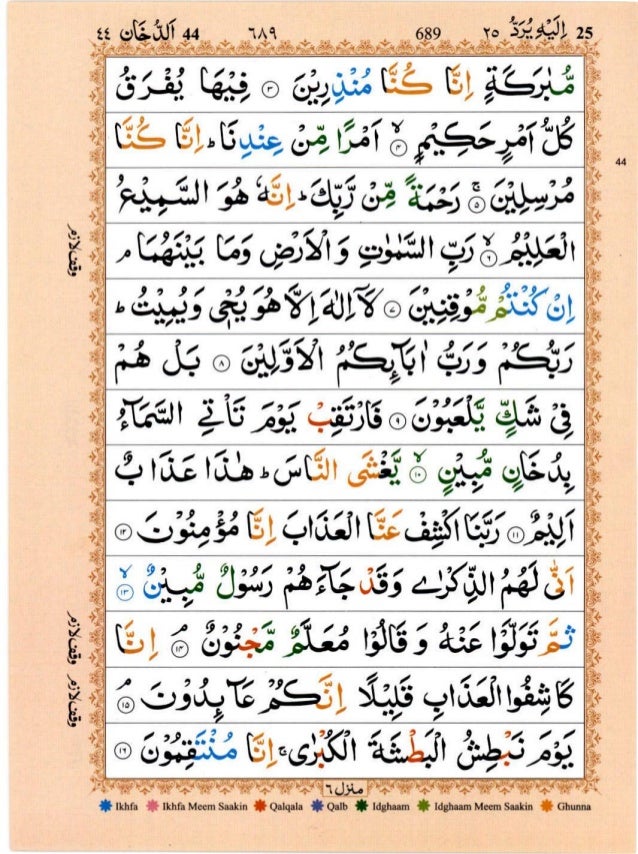 25 اِلَيْهِ يُرَدُّ ٢٥ 689 ٦٨٩ 44 اَلدُّخَان ٤٤
مُّبٰرَكَةٍ اِنَّا كُنَّا مُنْذِرِيْنَ ۝٣ فِيْهَا يُفْرَقُ
كُلُّ اَمْرٍ حَكِيْمٍ ۙ۝٤ اَمْرًا مِّنْ عِنْدِنَا ؕ اِنَّا كُنَّا
44
مُرْسِلِيْنَ ۚ۝٥ رَحْمَةً مِّنْ رَّبِّكَ ؕ اِنَّهٗ هُوَ السَّمِيْعُ
الْعَلِيْمُ ۙ۝٦ رَبِّ السَّمٰوٰتِ وَالْاَرْضِ وَمَا بَيْنَهُمَا ۘ
وقف لازم
اِنْ كُنْتُمْ مُّوْقِنِيْنَ ۝٧ لَاۤ اِلٰهَ اِلَّا هُوَ يُحْيٖ وَيُمِيْتُ ؕ
رَبُّكُمْ وَرَبُّ اٰبَآئِكُمُ الْاَوَّلِيْنَ ۝٨ بَلْ هُمْ
فِيْ شَكٍّ يَّلْعَبُوْنَ ۝٩ فَارْتَقِبْ يَوْمَ تَاْتِي السَّمَآءُ
بِدُخَانٍ مُّبِيْنٍ ۙ۝١٠ يَّغْشَى النَّاسَ ؕ هٰذَا عَذَابٌ
اَلِيْمٌ ۝١١ رَبَّنَا اكْشِفْ عَنَّا الْعَذَابَ اِنَّا مُؤْمِنُوْنَ ۝١٢
اَنّٰى لَهُمُ الذِّكْرٰى وَقَدْ جَآءَهُمْ رَسُوْلٌ مُّبِيْنٌ ۙ۝١٣
ثُمَّ تَوَلَّوْا عَنْهُ وَقَالُوْا مُعَلَّمٌ مَّجْنُوْنٌ ۘ۝١٤ اِنَّا
وقف لازم
كَاشِفُوا الْعَذَابِ قَلِيْلًا اِنَّكُمْ عَآئِدُوْنَ ۘ۝١٥
وقف لازم
يَوْمَ نَبْطِشُ الْبَطْشَةَ الْكُبْرٰى ۚ اِنَّا مُنْتَقِمُوْنَ ۝١٦
منزل ٦
Ikhfa Ikhfa Meem Saakin Qalqala Qalb Idghaam Idghaam Meem Saakin Ghunna